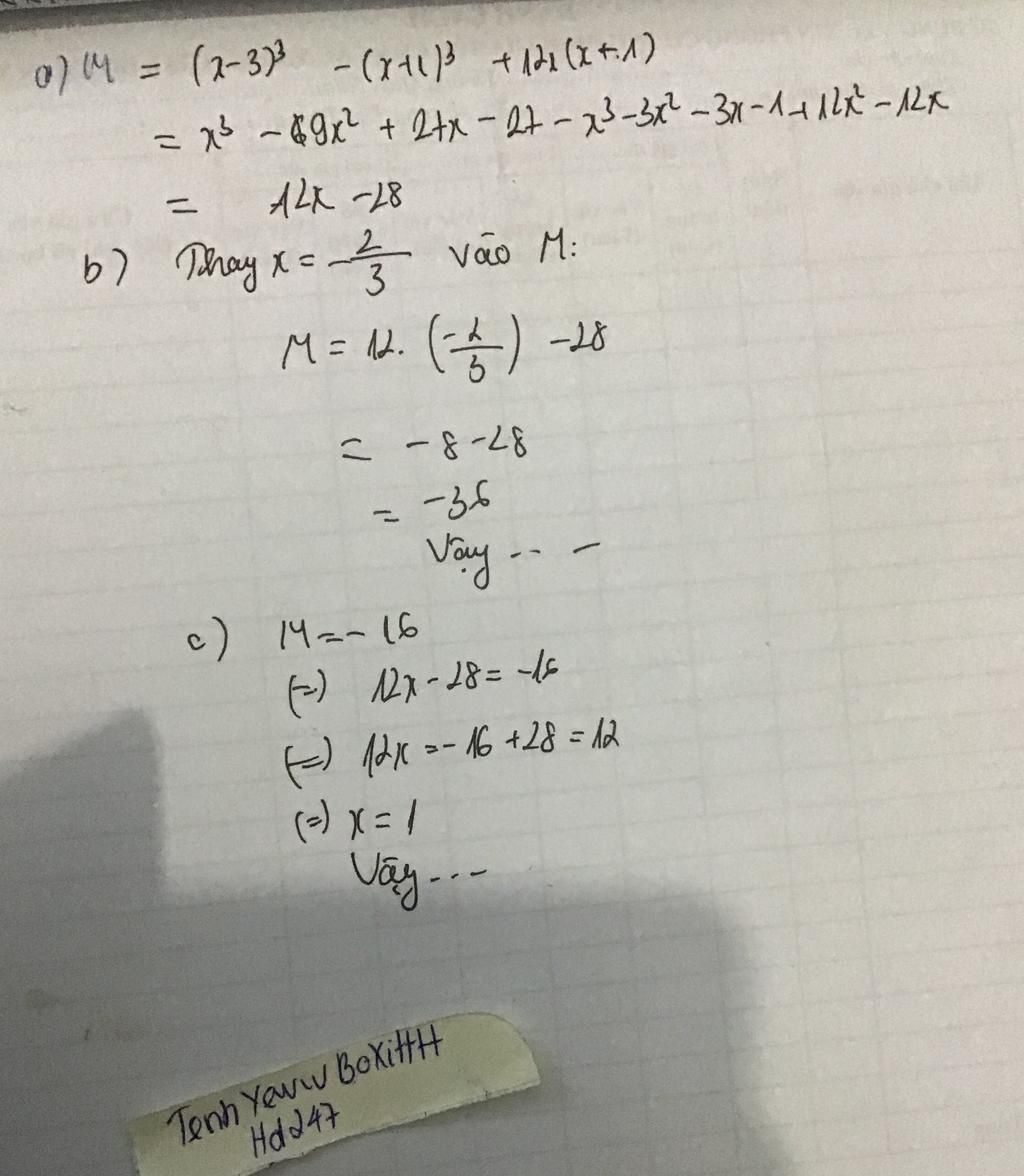 a) M = (x-3)³ - (x+1)³ + 12x(x+1)
= x³ - 9x² + 27x - 27 - x³ - 3x² - 3x - 1 + 12x² - 12x
= 12x - 28
b) Thay x = -2/3 vào M:
M = 12. (-2/3) - 28
= -8 - 28
= -36
Vậy .. -
c) M = - 16
(=) 12x - 28 = -16
(=) 12x = - 16 + 28 = 12
(=) x = 1
Vậy ...
TenhYewwBoXiHH
Hd247